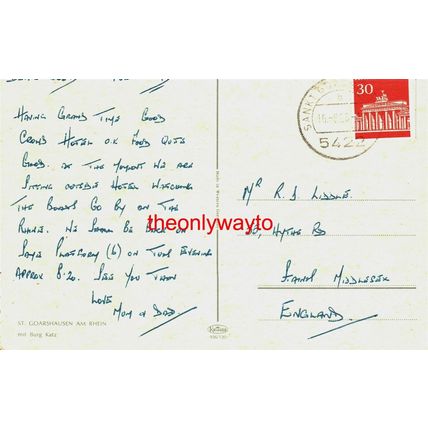 HAVING GRAND TIME GOOD
CROWD HOTEL O.K FOOD QUITE
GOOD. AT THE MOMENT WE ARE
SITTING OUTSIDE HOTEL WATCHING
THE BOATS GO BY ON THE
RHINE. WE SHALL BE BACK ON
SAME PLATFORM (6) ON TUES EVENING
APPROX 8.20. SEE YOU THEN
LOVE
MUM & DAD.
ST. GOARSHAUSEN AM RHEIN
mit Burg Katz
30
SANKT
5422
MR R. J. LIDDLE.
HYTHE RD
STAINES MIDDLESEX
ENGLAND.
theonlywayto